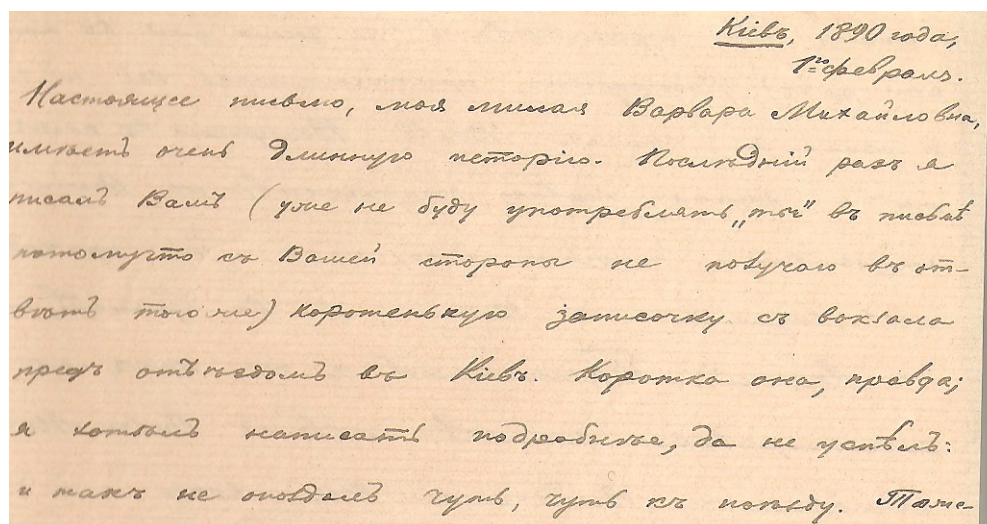 Кіевъ, 1890 года,
1го февраля.
Настоящее письмо, моя милая Варвара Михайловна,
имѣетъ очень длинную исторію. Послѣдній разъ я
писалъ Вамъ (уже не буду употреблять „ты" въ письмѣ
потомучто съ Вашей стороны не получаю въ от-
вѣтъ того же) коротенькую записочку съ вокзала
предъ отъѣздомъ въ Кіевъ. Коротка она, правда;
я хотѣлъ написать подробнѣе, да не успѣлъ:
и такъ не опоздалъ чуть, чуть къ поѣзду. Томе-